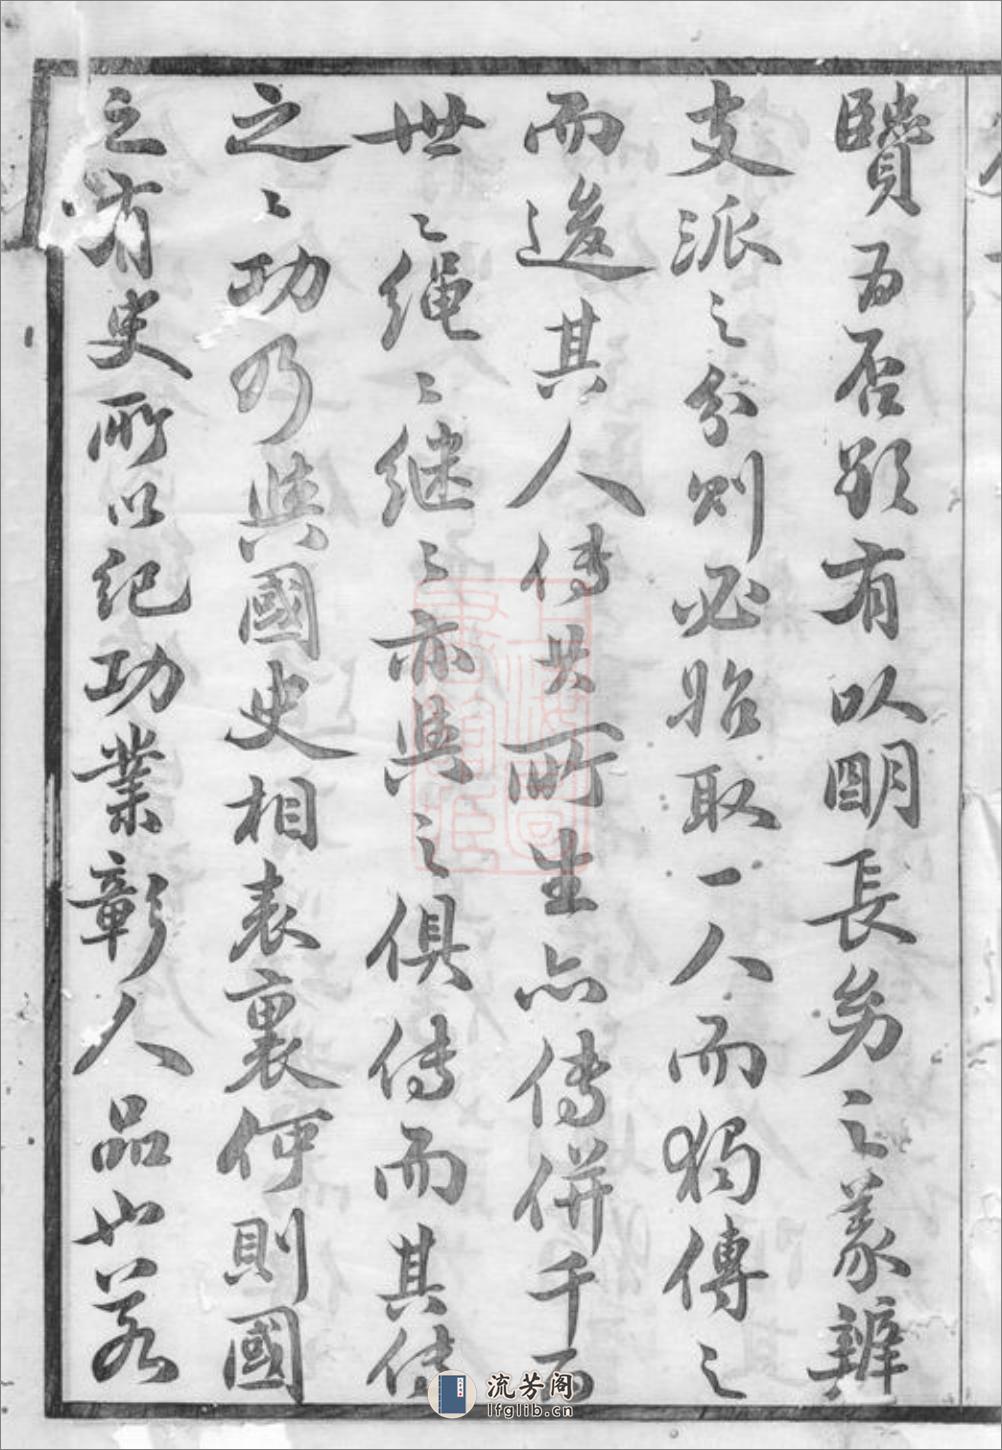 賢否欲有以明長幼之義辨
支派之分則必貽取一人而獨傳之
而逡其人傳其所生亦傳併千百
世〻繩〻継〻亦與之俱傳而其傳
之〻功乃與國史相表裏何則國
之有史所以紀功業彰人品也若
流芳阁
lfglib.cn